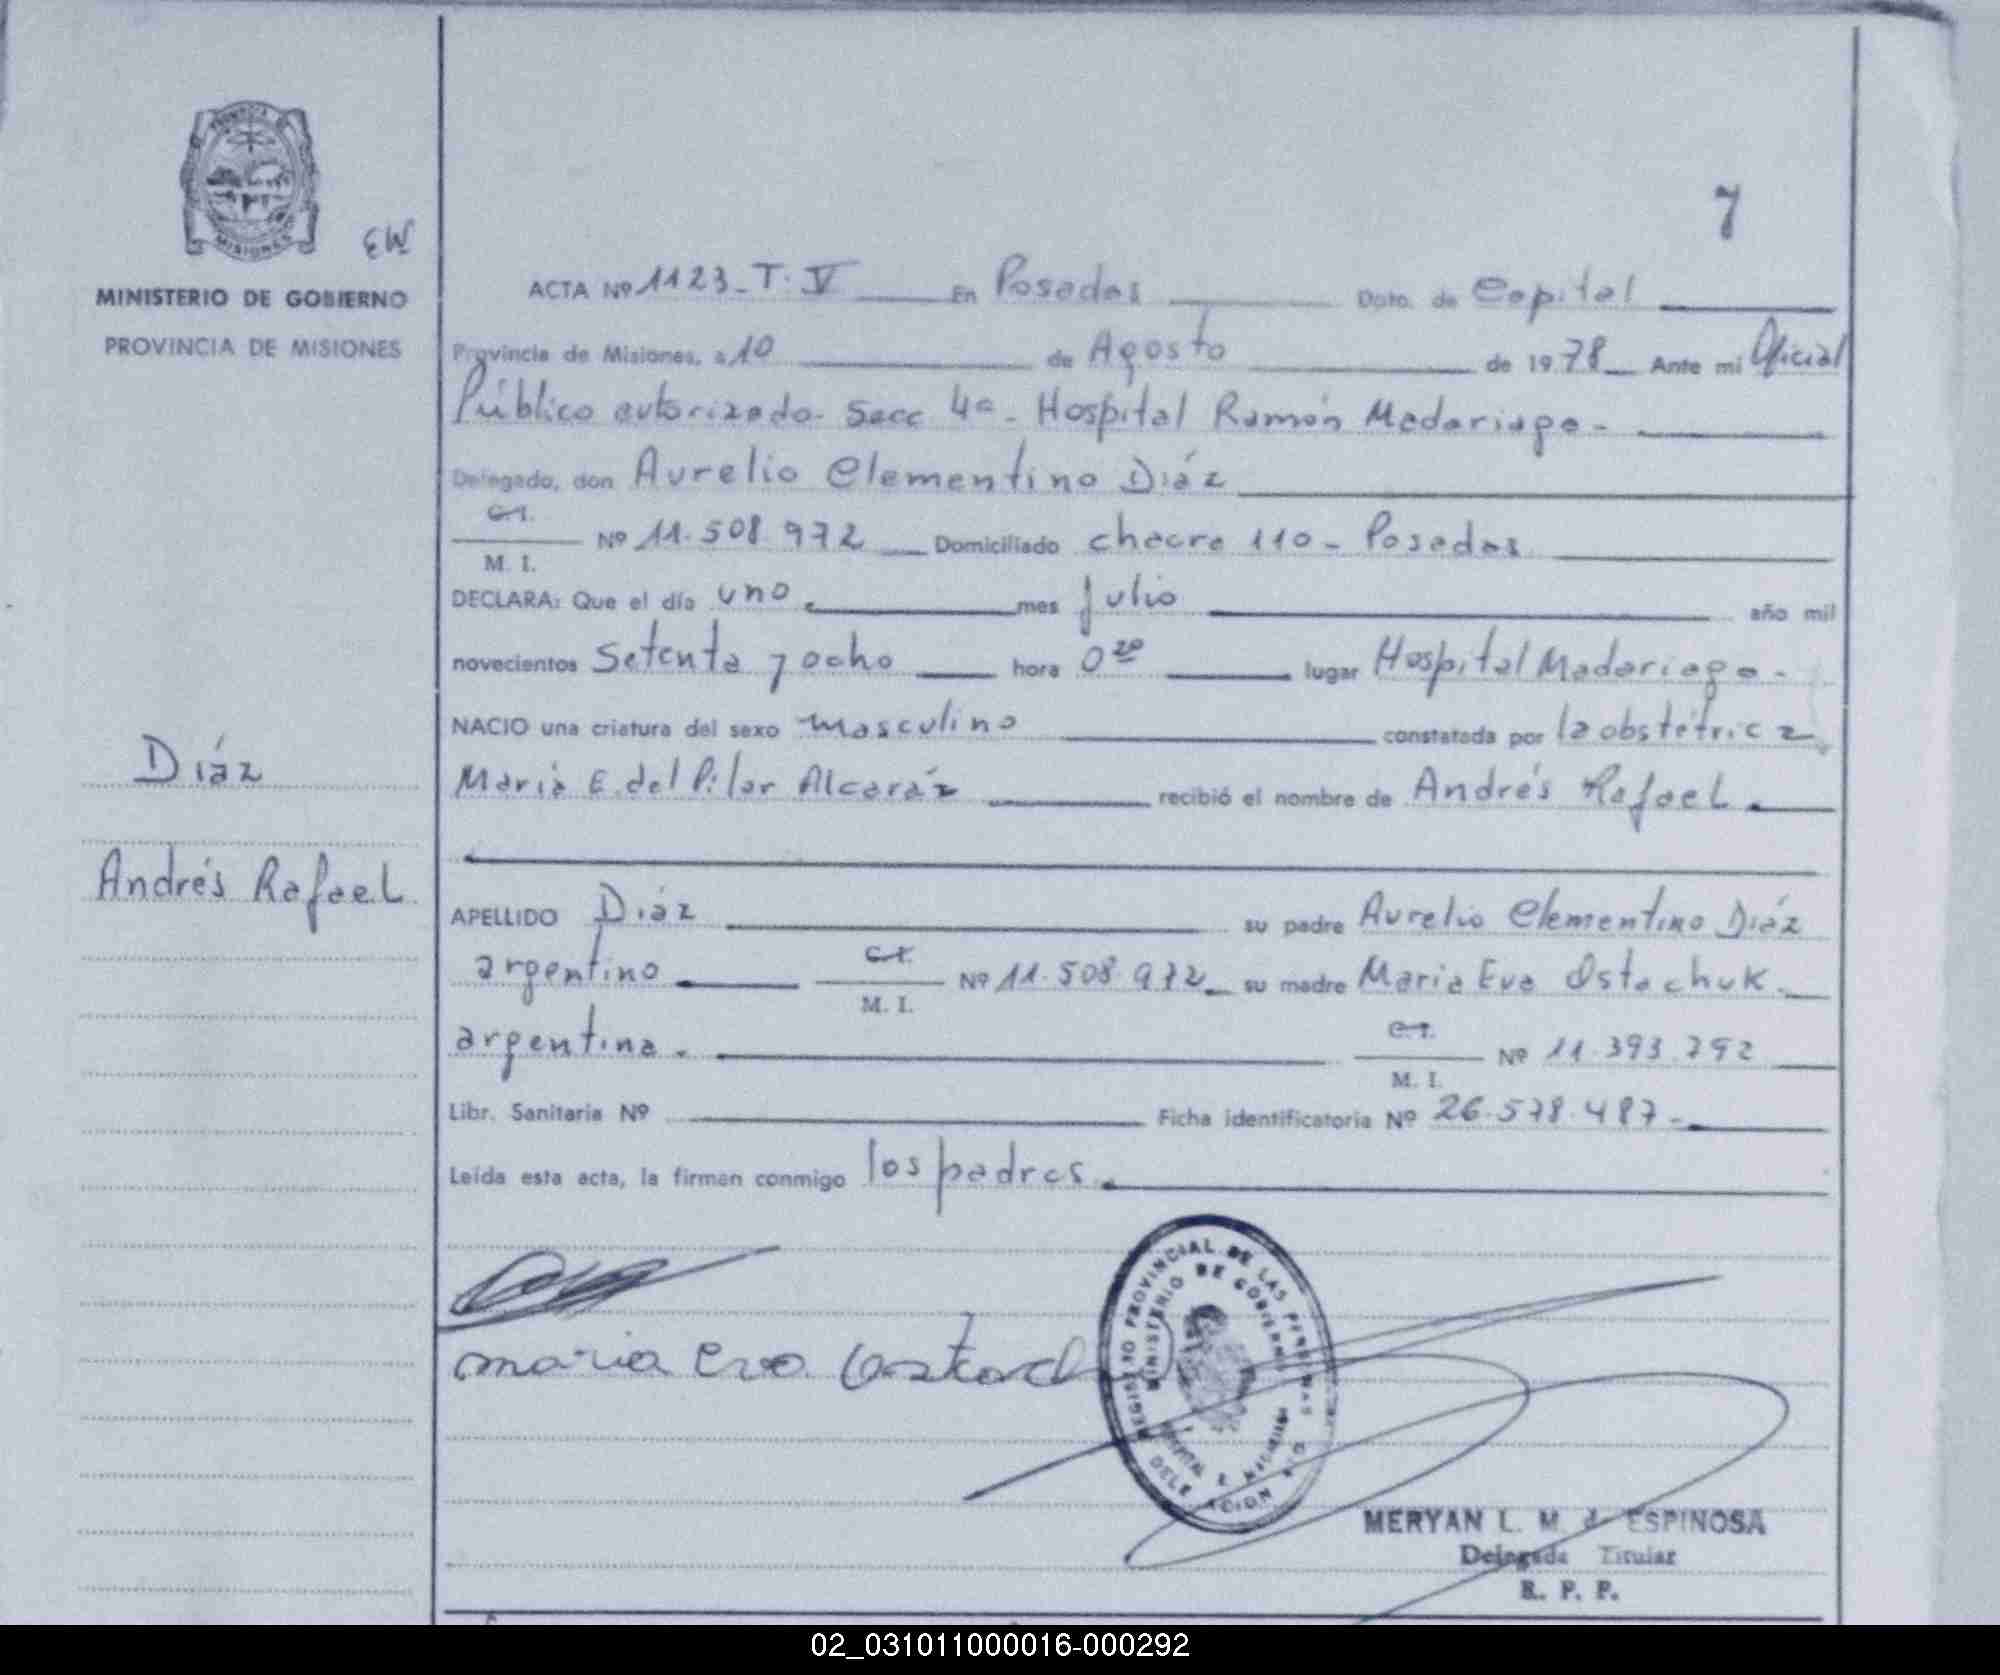 PROVINCIA DE MISIONES
EW
MINISTERIO DE GOBIERNO
PROVINCIA DE MISIONES
Diáz
Andrés Rafael
7
ACTA Nº 1123-T.V En Posadas Dpto. de Capital
Provincia de Misiones, a 10 de Agosto de 1978 Ante mi Oficial
Público autorizado- Secc 4a- Hospital Ramón Madariaga-
Delegado, don Aurelio Clementino Diáz
C.I.
M. I. Nº 11.508.972 Domiciliado chacra 110- Posadas
DECLARA: Que el día uno mes julio año mil
novecientos setenta y ocho hora 0 20 lugar Hospital Madariaga-
NACIO una criatura del sexo masculino constatada por la obstétrica
María E. del Pilar Alcaráz recibió el nombre de Andrés Rafael.
APELLIDO Diáz su padre Aurelio Clementino Diáz
argentino C.I. M. I. Nº 11.508.972 su madre Maria Eva Ostachuk
argentina. C.I. M. I. Nº 11.393.792
Libr. Sanitaria Nº Ficha identificatoria Nº 26.578.487-
Leída esta acta, la firman conmigo los padres.
maria Eva
REGISTRO PROVINCIAL DE LAS PERSONAS
MINISTERIO DE GOBIERNO
DELEGACION
MERYAN L. M. de ESPINOSA
Delegada Titular
R. P. P.
02_031011000016-000292